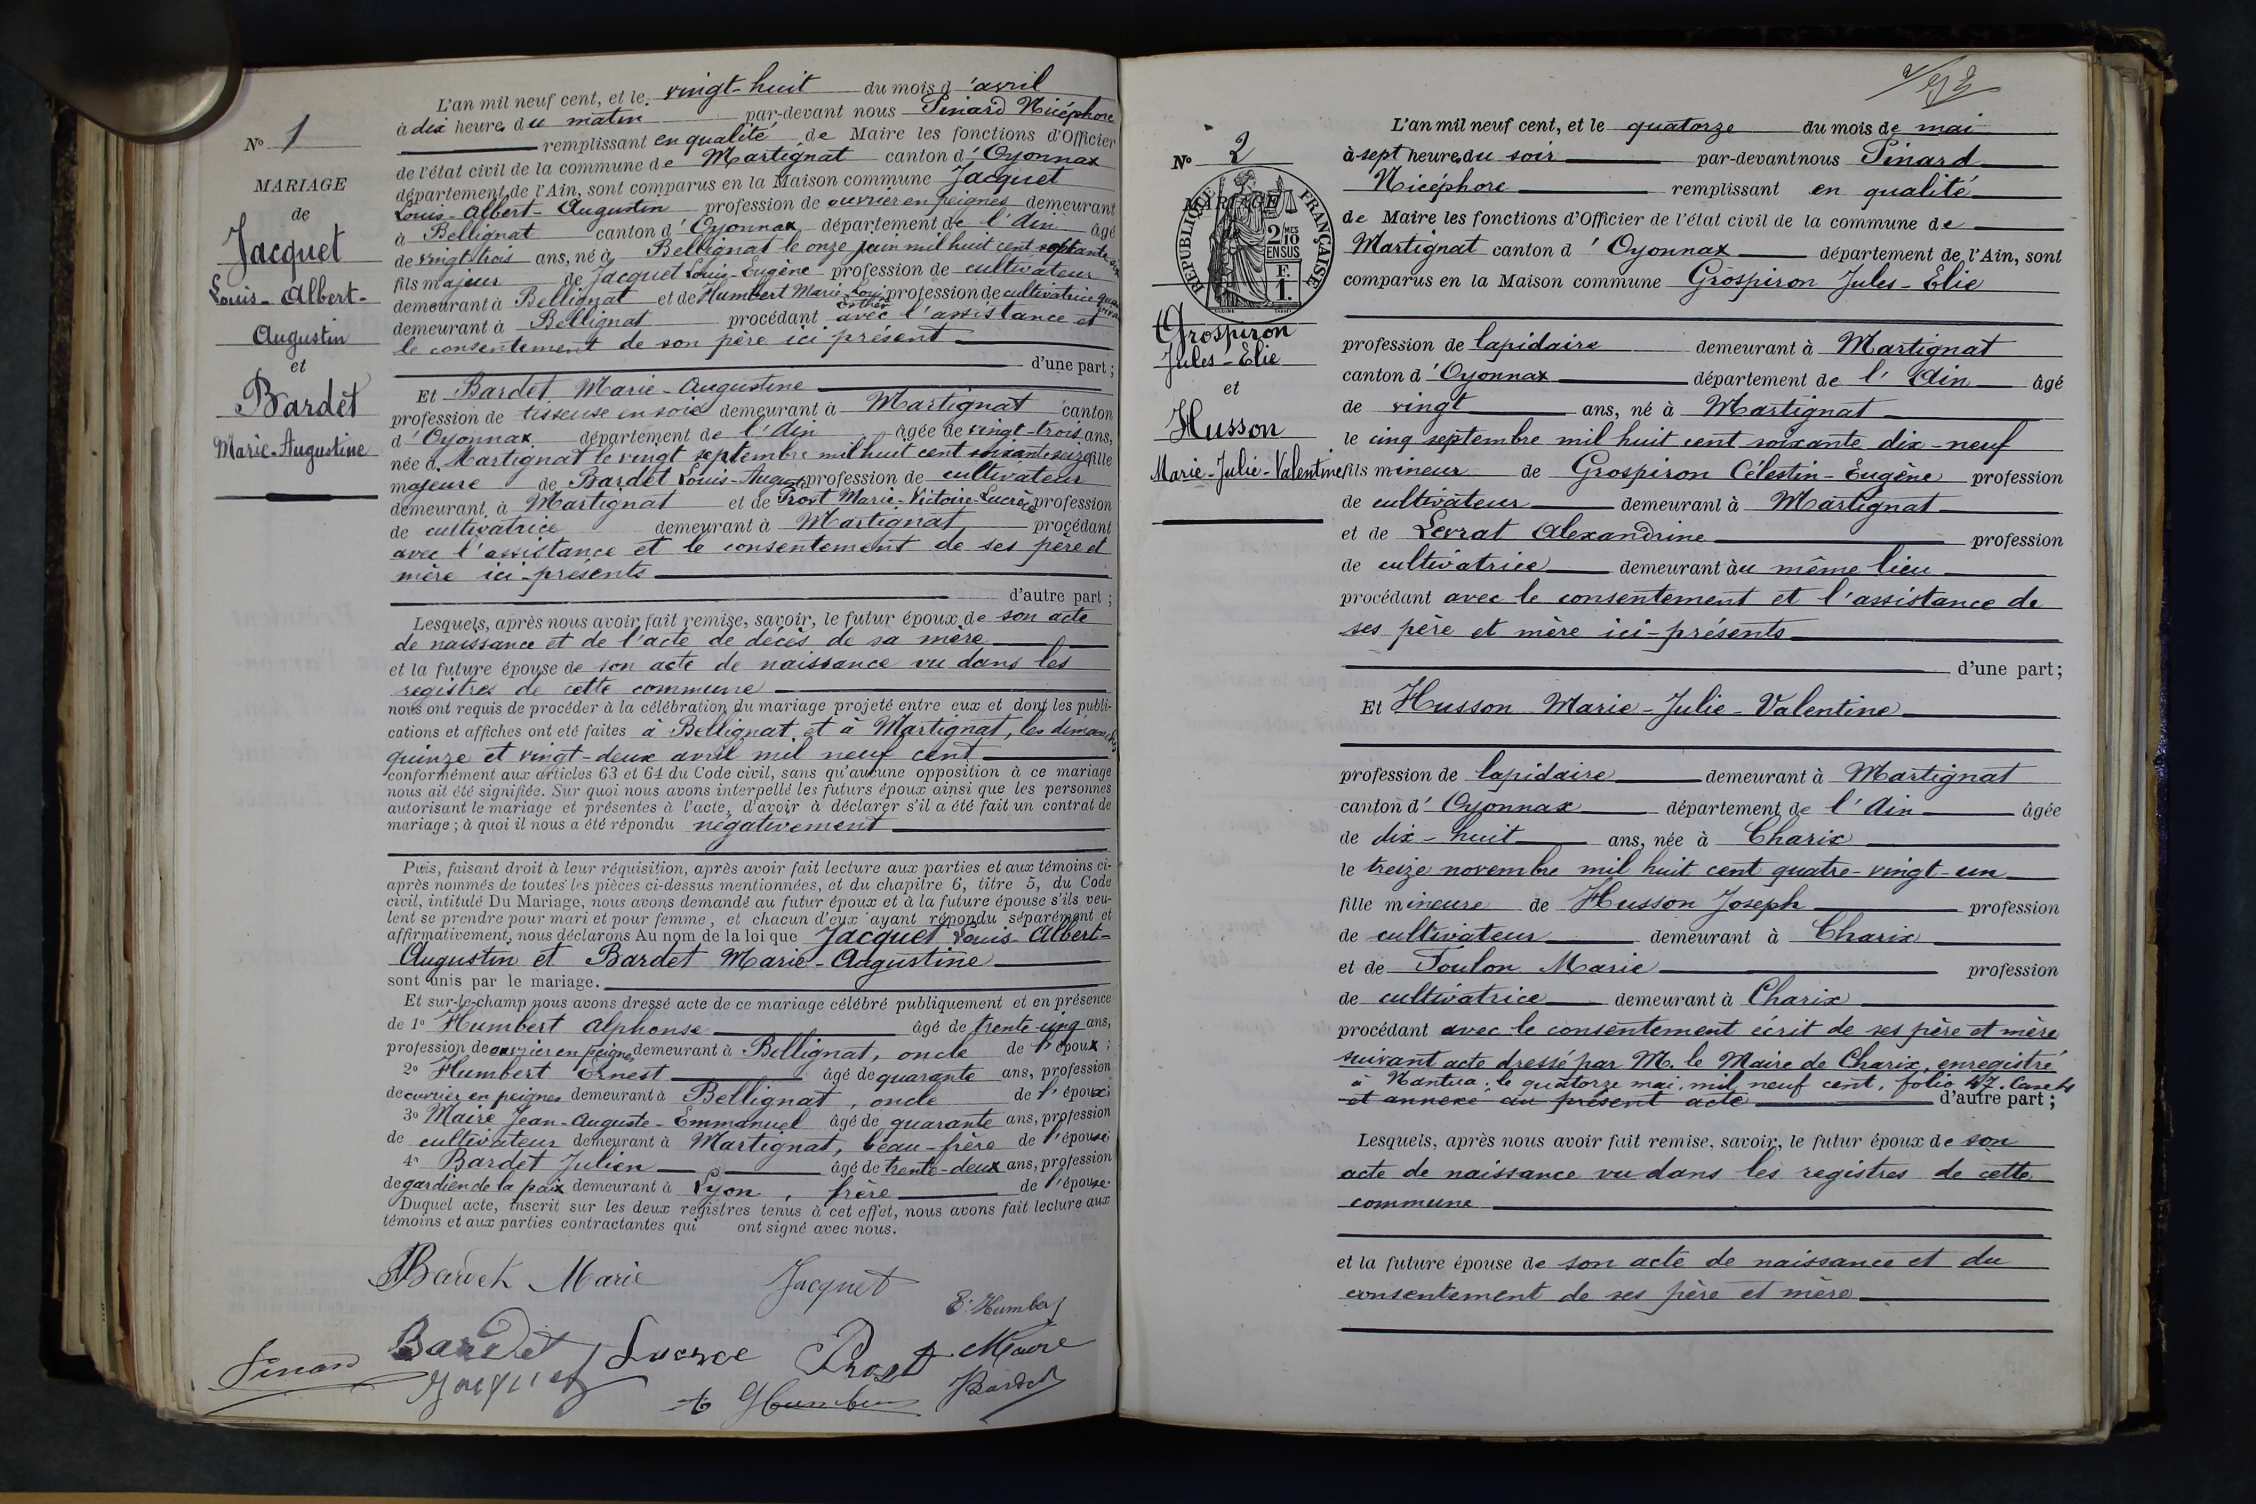 N° 1
MARIAGE
de
Jacquet
Louis-Albert-
Augustin
et
Bardet
Marie-Augustine
L'an mil neuf cent, et le vingt-huit du mois d'avril
à dix heures du matin par-devant nous Pinard Nicéphore
remplissant en qualité de Maire les fonctions d'Officier
de l'état civil de la commune de Martignat canton d'Oyonnax
département de l'Ain, sont comparus en la Maison commune Jacquet
Louis-Albert-Augustin profession de ouvrier en peignes demeurant
à Bellignat canton d'Oyonnax département de l'Ain âgé
de vingt trois ans, né à Bellignat le onze juin mil huit cent septante six
fils majeur de Jacquet Louis-Eugène profession de cultivateur
demeurant à Bellignat et de Humbert Marie-Louise Esther profession de cultivatrice quand vivait
demeurant à Bellignat procédant avec l'assistance et
le consentement de son père ici présent
d'une part;
Et Bardet Marie-Augustine
profession de tisseuse en soie demeurant à Martignat canton
d'Oyonnax département de l'Ain âgée de vingt-trois ans,
née à Martignat le vingt septembre mil huit cent soixante seize fille
majeure de Bardet Louis-August profession de cultivateur
demeurant à Martignat et de Prost Marie-Victoire-Lucrèce profession
de cultivatrice demeurant à Martignat procédant
avec l'assistance et le consentement de ses père et
mère ici-présents
d'autre part;
Lesquels, après nous avoir fait remise, savoir, le futur époux de son acte
de naissance et de l'acte de décès de sa mère
et la future épouse de son acte de naissance vu dans les
registres de cette commune
nous ont requis de procéder à la célébration du mariage projeté entre eux et dont les publi-
cations et affiches ont eté faites à Bellignat et à Martignat, les dimanches
quinze et vingt-deux avril mil neuf cent
conformément aux articles 63 et 64 du Code civil, sans qu'aucune opposition à ce mariage
nous ait été signifiée. Sur quoi nous avons interpellé les futurs époux ainsi que les personnes
autorisant le mariage et présentes à l'acte, d'avoir à déclarer s'il a été fait un contrat de
mariage; à quoi il nous a été répondu négativement
Puis, faisant droit à leur réquisition, après avoir fait lecture aux parties et aux témoins ci-
après nommés de toutes les pièces ci-dessus mentionnées, et du chapitre 6, titre 5, du Code
civil, intitulé Du Mariage, nous avons demandé au futur époux et à la future épouse s'ils veu-
lent se prendre pour mari et pour femme, et chacun d'eux ayant répondu séparément et
affirmativement, nous déclarons Au nom de la loi que Jacquet Louis-Albert-
Augustin et Bardet Marie-Augustine
sont unis par le mariage.
Et sur-le-champ nous avons dressé acte de ce mariage célébré publiquement et en présence
de 1° Humbert Alphonse âgé de trente-cinq ans,
profession de ouvrier en peignes demeurant à Bellignat, oncle de l'époux;
2° Humbert Ernest âgé de quarante ans, profession
de ouvrier en peignes demeurant à Bellignat, oncle de l'époux;
3° Maire Jean-Auguste-Emmanuel âgé de quarante ans, profession
de cultivateur demeurant à Martignat, beau-frère de l'épouse;
4° Bardet Julien âgé de trente-deux ans, profession
de gardien de la paix demeurant à Lyon, frère de l'épouse.
Duquel acte, inscrit sur les deux registres tenus à cet effet, nous avons fait lecture aux
témoins et aux parties contractantes qui ont signé avec nous.
Bardet Marie Jacquet
E. Humbert
Bardet Lucrece Prost Maire
Pinard Jacquet A Humbert Bardet
N° 2
MARIAGE
RÉPUBLIQUE FRANÇAISE
2/10 MES
EN SUS
F.
1.
Grospiron
Jules-Elie
et
Husson
Marie-Julie-Valentine
L'an mil neuf cent, et le quatorze du mois de mai
à sept heures du soir par-devant nous Pinard
Nicéphore remplissant en qualité
de Maire les fonctions d'Officier de l'état civil de la commune de
Martignat canton d'Oyonnax département de l'Ain, sont
comparus en la Maison commune Grospiron Jules-Elie
profession de lapidaire demeurant à Martignat
canton d'Oyonnax département de l'Ain âgé
de vingt ans, né à Martignat
le cinq septembre mil huit cent soixante dix-neuf
fils mineur de Grospiron Célestin-Eugène profession
de cultivateur demeurant à Martignat
et de Levrat Alexandrine profession
de cultivatrice demeurant au même lieu
procédant avec le consentement et l'assistance de
ses père et mère ici-présents
d'une part;
Et Husson Marie-Julie-Valentine
profession de lapidaire demeurant à Martignat
canton d'Oyonnax département de l'Ain âgée
de dix-huit ans, née à Charix
le treize novembre mil huit cent quatre-vingt-un
fille mineure de Husson Joseph profession
de cultivateur demeurant à Charix
et de Toulon Marie profession
de cultivatrice demeurant à Charix
procédant avec le consentement écrit de ses père et mère
suivant acte dressé par M. le Maire de Charix, enregistré
à Nantua, le quatorze mai mil neuf cent, folio 47. Case 4
et annexé au présent acte d'autre part;
Lesquels, après nous avoir fait remise, savoir, le futur époux de son
acte de naissance vu dans les registres de cette
commune
et la future épouse de son acte de naissance et du
consentement de ses père et mère